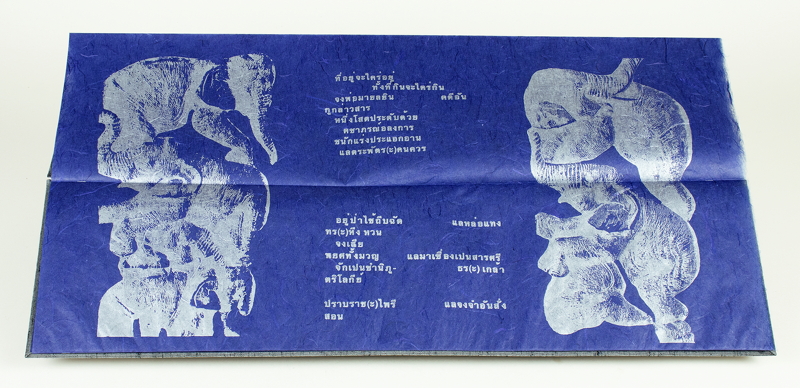 ที่อยู่จะใคร่อยู่
ทั้งที่กินจะใคร่กิน
จงพ่อมายลยิน คดีฉัน
ทุกลาวสาร
หนึ่งโสดประดับด้วย
คชาภรณอลงการ
ชนักแรงประแอกอาน
แลตระพัดร(ะ)คนควร
อยู่ป่าไข้ถีบฉัด แลหล่อแทง
ทร(ะ)หึง หวน
จงเสีย
พยศทั้งมวญ แลมาเชื่องเปนสารศรี
จักเปนช้านิภู- ธร(ะ) เกลา
ตริโลกีย์
ปราบราช(ะ)ไพรี แลจงจำอันสั่ง
สอน